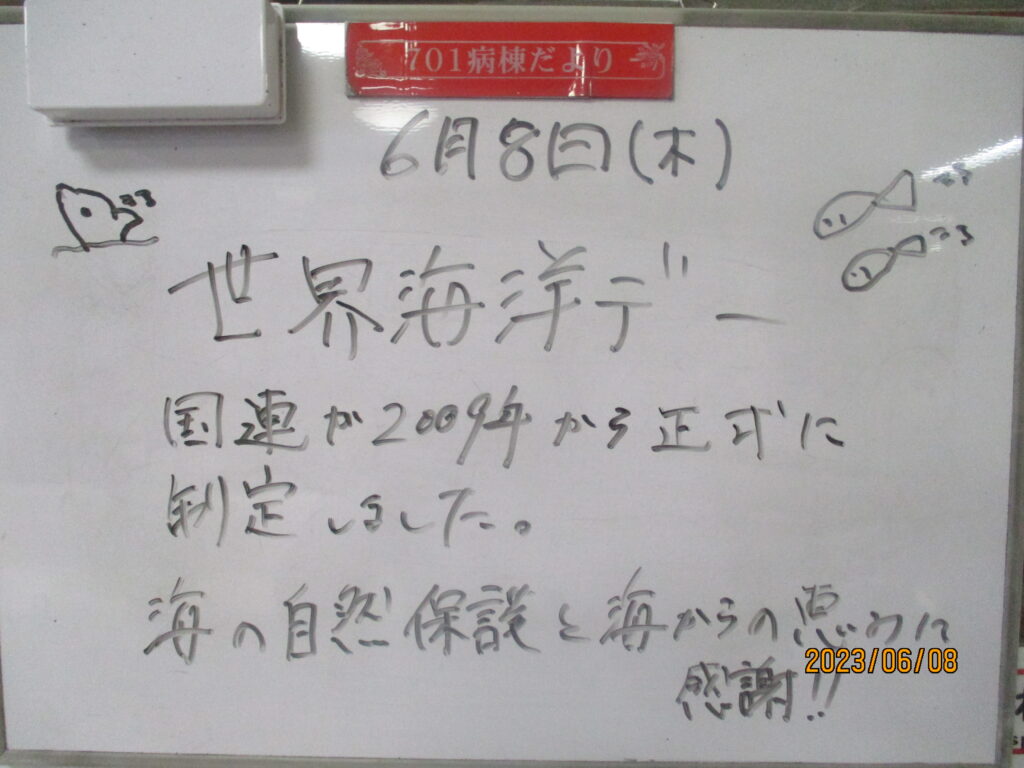 701病棟だより
6月8日(木)
世界海洋デー
国連が2009年から正式に
制定しました。
海の自然保護と海からの恵みに
2023/06/08
感謝!!